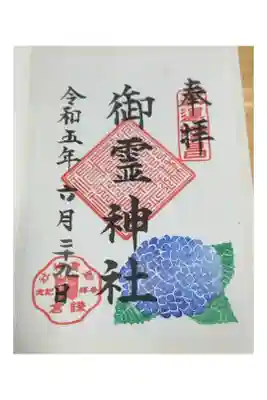 奉拝
御霊神社
令和五年六月二十九日